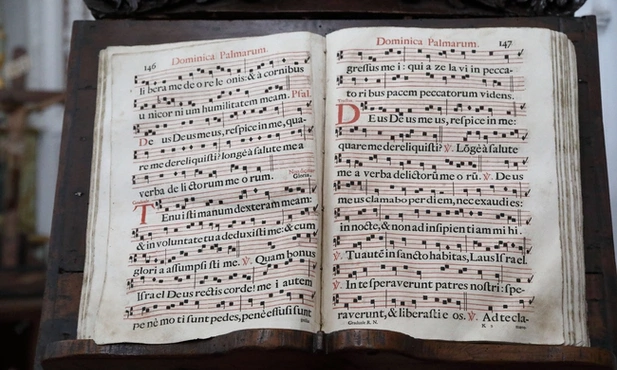 146
Dominica Palmarum.
libera me de ore leonis: & à cornibus
unicornium humilitatem meam. Psal.
Deus Deus meus, respice in me, qua-
re me dereliquisti? longè à salute mea
verba delictorum meorum.
Gloria.
Tenuisti manum dexteram meam:
& in voluntate tua deduxisti me: & cum
gloria assumpsisti me. ℣. Quam bonus
Israel Deus rectis corde! mei autem
penè moti sunt pedes, penè effusi sunt
Dominica Palmarum.
147
gressus mei: quia zelavi in pecca-
toribus pacem peccatorum videns.
Deus Deus meus, respice in me:
quare me dereliquisti? ℣. Lõgè à salute
mea verba delictorũ meorũ. ℣. Deus
meus clamabo per diem, nec exaudies:
in nocte, & non ad insipientiam mihi.
℣. Tu autẽ in sancto habitas, Laus Israel.
℣. In te speraverunt patres nostri: spe-
raverunt, & liberasti eos. ℣. Ad te cla-
Graduale R. N.